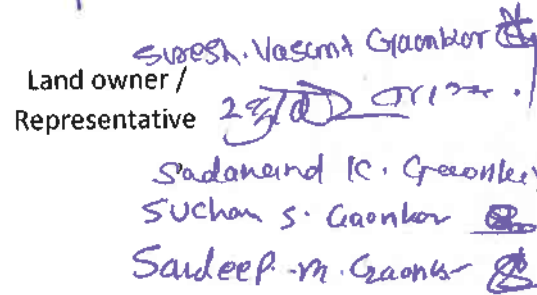 Suresh. Vasant Gaonkor
Land owner /
Representative
Sadanand K. Gaonker
Suchan S. Gaonkor
Sandeep. M. Gaonkr